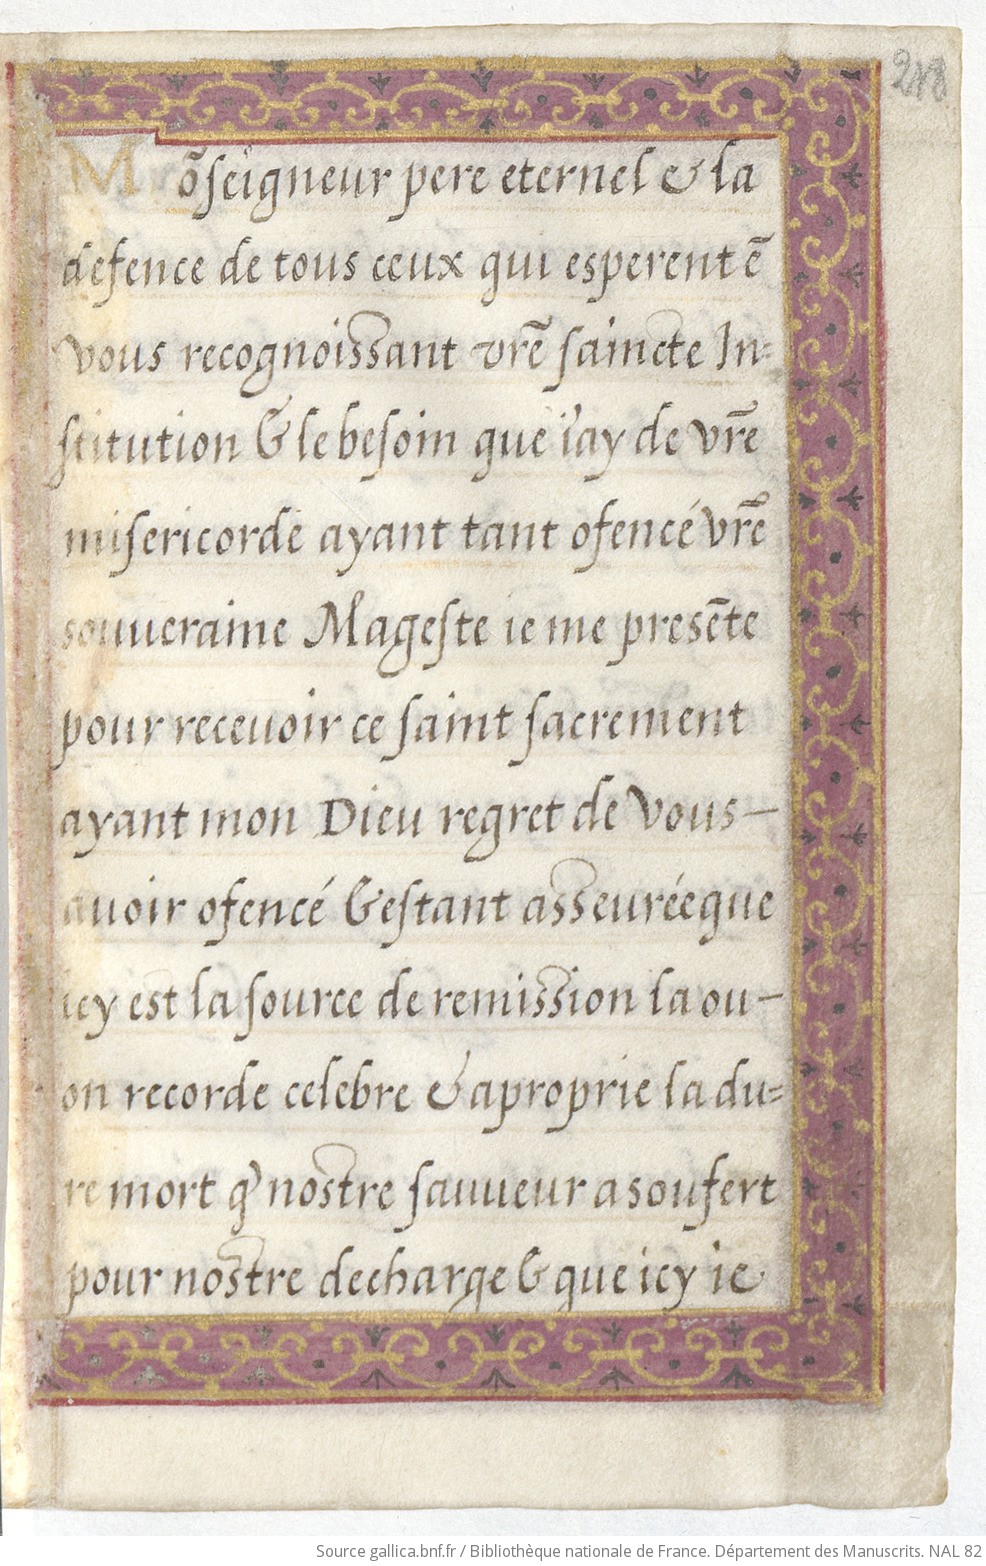 218
Mõseigneur pere eternel & la
defence de tous ceux qui esperent ẽ
vous recognoissant vr̃e saincte In=
stitution & le besoin que i'ay de vr̃e
misericorde ayant tant ofencé vr̃e
souueraine Mageste ie me presẽte
pour receuoir ce saint sacrement
ayant mon Dieu regret de vous—
auoir ofencé & estant asseurée que
icy est la source de remission la ou—
on recorde celebre & aproprie la du=
re mort q̃ nostre sauueur a soufert
pour nostre decharge & que icy ie
Source gallica.bnf.fr / Bibliothèque nationale de France. Département des Manuscrits. NAL 82